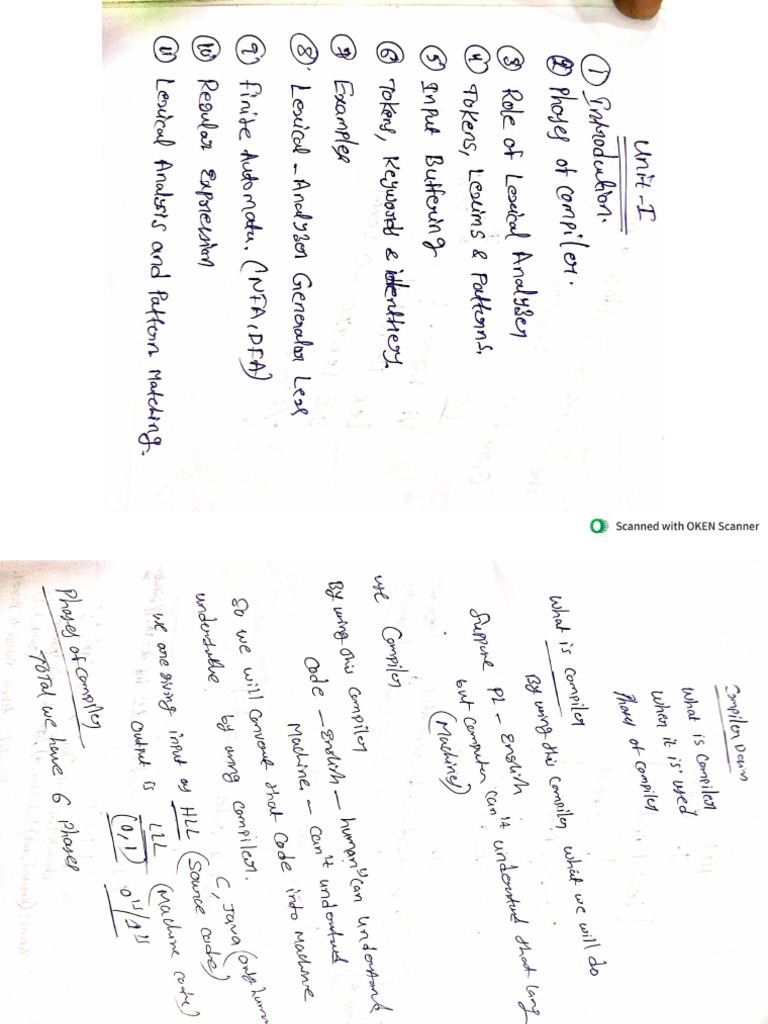 Unit-I
① Introduction.
② Phases of compiler.
③ Role of Lexical Analyzer
④ Tokens, Lexims & Patterns,
⑤ Input Buffering
⑥ Tokens, Keywords & identifiers.
⑦ Examples
⑧. Lexical-Analyzer Generator Lex
⑨ Finite Automata. (NFA, DFA)
⑩ Regular Expression
⑪ Lexical Analysis and Pattern Matching.
Scanned with OKEN Scanner
Compiler Desin
What is compiler
When it is used
Phases of compiler
What is compiler
By using this compiler what we will do
Suppose PL - English
but computer can't understand that lang
(Machine)
use Compiler
By using this compiler
Code - English - human can understand
Machine - can't understand
So we will convert that code into machine
understable by using compiler.
C, Java (only human
we are giving input as HLL (source code)
output is LLL (Machine code)
(0,1) 0's/1's
Phases of compiler
Total we have 6 phases